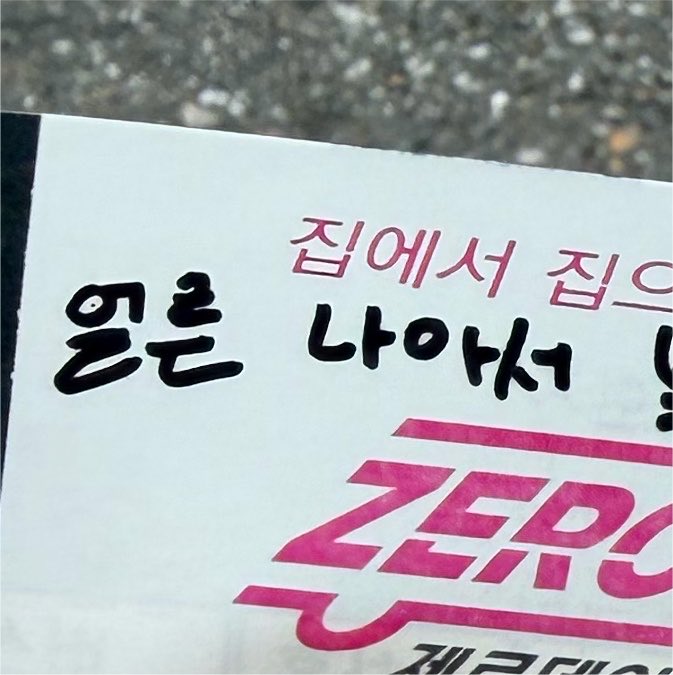 집에서 집으
얼른 나아서
ZERO
제로데이